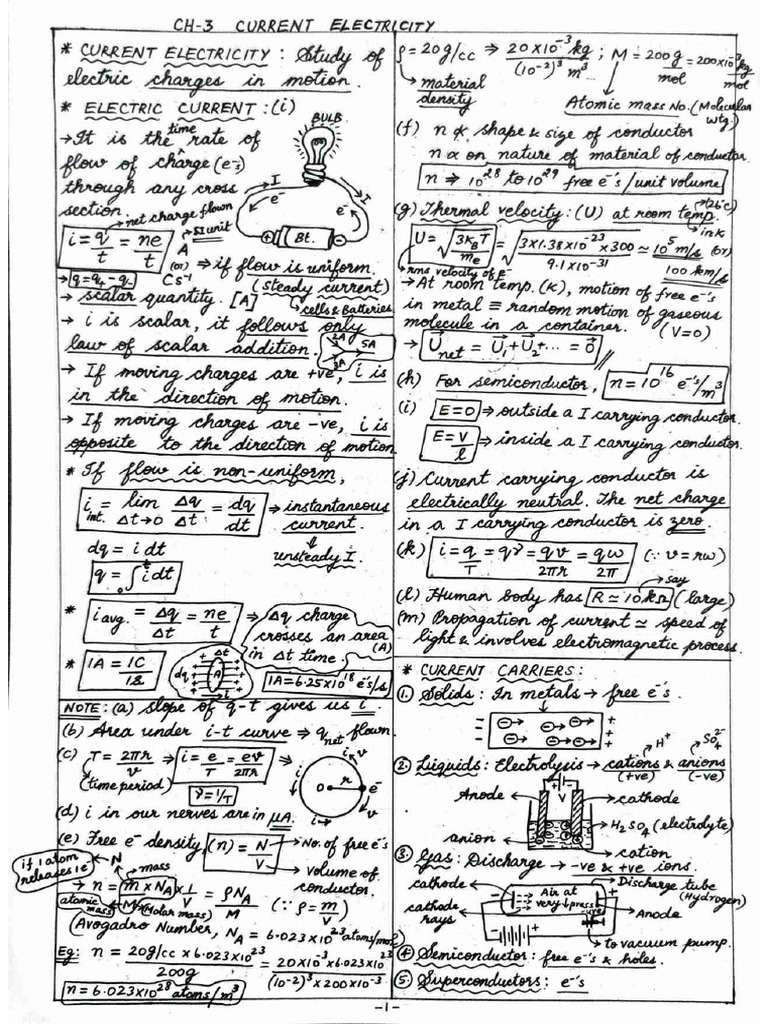 CH-3 CURRENT ELECTRICITY
* CURRENT ELECTRICITY: Study of
electric charges in motion.
* ELECTRIC CURRENT: (i)
BULB
→ It is the time rate of
flow of charge (e⁻s)
through any cross
section.
I
I
e⁻
e⁻
Bt.
net charge flown
SI unit
i = q/t = ne/t
A (or) Cs⁻¹
⇒ if flow is uniform.
(steady current)
→ q = q₊ - q₋
cells & Batteries
→ scalar quantity. [A]
→ i is scalar, it follows only
law of scalar addition.
2A
5A
3A
→ If moving charges are +ve, i is
in the direction of motion.
→ If moving charges are -ve, i is
opposite to the direction of motion
* If flow is non-uniform,
i int. = lim Δt→0 Δq/Δt = dq/dt ⇒ instantaneous
current.
unsteady I.
dq = i dt
q = ₀∫ᵗ i dt
* i avg. = Δq/Δt = ne/t ⇒ Δq charge
crosses an area (A)
in Δt time.
* 1A = 1C/1s
Δt
dq
A
i
1A = 6.25×10¹⁸ e⁻s/s
NOTE: (a) slope of q-t gives us i.
(b) Area under i-t curve ⇒ q net flown.
(c) T = 2πr/v ⇒ i = e/T = ev/2πr ⇒
(time period)
ν = 1/T
i
v
i
o
r
e⁻
v
(d) i in our nerves are in μA.
(e) Free e⁻ density, (n) = N/V
No. of free e⁻s
volume of
conductor.
if 1 atom
releases 1 e⁻
N
mass
→ n = m × N_A/M × 1/V = ρN_A/M (∵ ρ = m/V)
atomic
mass
(Molar mass)
(Avogadro Number, N_A = 6.023×10²³ atoms/mol)
Eg: n = 20g/cc × 6.023×10²³/200g = 20×10⁻³×6.023×10²³/(10⁻²)³×200×10⁻³
n = 6.023×10²⁸ atoms/m³
ρ = 20g/cc ⇒ 20×10⁻³kg/(10⁻²)³m³ ; M = 200g/mol = 200×10⁻³kg/mol
material
density
Atomic mass No. (Molecular
wtg.)
(f) n ∝̸ shape & size of conductor
n ∝ on nature of material of conductor.
n ⇒ 10²⁸ to 10²⁹ free e⁻s/unit volume
(g) Thermal velocity: (U) at room temp.
(26°c)
in K
U = √(3k_BT/m_e) = √(3×1.38×10⁻²³×300/9.1×10⁻³¹) ≃ 10⁵ m/s (or)
100 km/s
rms velocity of e⁻
→ At room temp. (K), motion of free e⁻s
in metal ≡ random motion of gaseous
molecule in a container. (V=0)
→ U⃗net = U⃗₁ + U⃗₂ + ... = 0⃗
(h) For semiconductor, n = 10¹⁶ e⁻s/m³
(i) E = 0 ⇒ outside a I carrying conductor.
E = V/l ⇒ inside a I carrying conductor.
(j) Current carrying conductor is
electrically neutral. The net charge
in a I carrying conductor is zero.
(k) i = q/T = qν = qv/2πr = qω/2π (∵ v = rω)
say
(l) Human body has R ≃ 10kΩ (large)
(m) Propagation of current ≃ speed of
light & involves electromagnetic process.
* CURRENT CARRIERS:
① Solids: In metals → free e⁻s.
H⁺
SO₄²⁻
② Liquids: Electrolysis → cations & anions
(+ve)
(-ve)
V
Anode
cathode
H₂SO₄ (electrolyte)
anion
cation
③ Gas: Discharge → -ve & +ve ions.
cathode
Discharge tube
(Hydrogen)
Air at
very ↓ press.
cathode
rays
Anode
to vacuum pump.
④ Semiconductor: free e⁻s & holes.
⑤ Superconductors: e⁻s
-1-